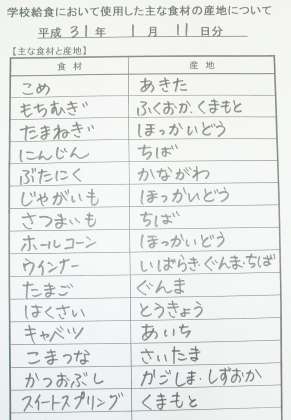 学校給食において使用した主な食材の産地について
平成 31 年 1 月 11 日分
【主な食材と産地】
食材 産地
こめ あきた
もちむぎ ふくおか、くまもと
たまねぎ ほっかいどう
にんじん ちば
ぶたにく かながわ
じゃがいも ほっかいどう
さつまいも ちば
ホールコーン ほっかいどう
ウインナー いばらき・ぐんま・ちば
たまご ぐんま
はくさい とうきょう
キャベツ あいち
こまつな さいたま
かつおぶし かごしま・しずおか
スイートスプリング くまもと